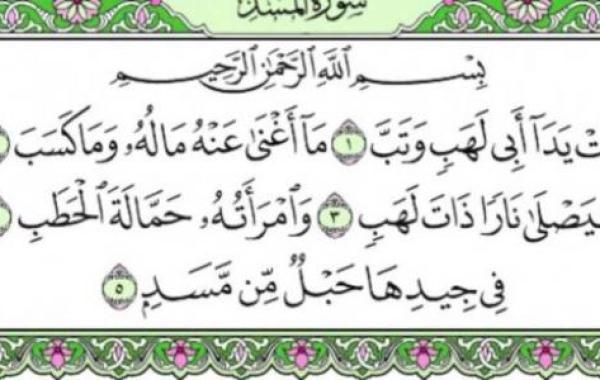 سُورَةُ المَسَدِ
بِسْمِ اللَّهِ الرَّحْمَٰنِ الرَّحِيمِ
تْ يَدَآ أَبِي لَهَبٍ وَتَبَّ ١ مَآ أَغْنَىٰ عَنْهُ مَالُهُۥ وَمَا كَسَبَ
يَصْلَىٰ نَارًا ذَاتَ لَهَبٍ ٣ وَٱمْرَأَتُهُۥ حَمَّالَةَ ٱلْحَطَبِ
فِي جِيدِهَا حَبْلٌ مِّن مَّسَدٍ ٥